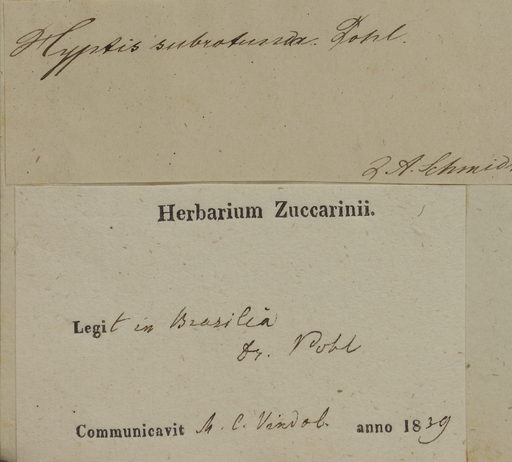 Hyptis subrotunda. Pohl.
J. A. Schmidt
Herbarium Zuccarinii.
Legit in Brasiliâ
Dr. Pohl
Communicavit M. C. Vindob. anno 1839